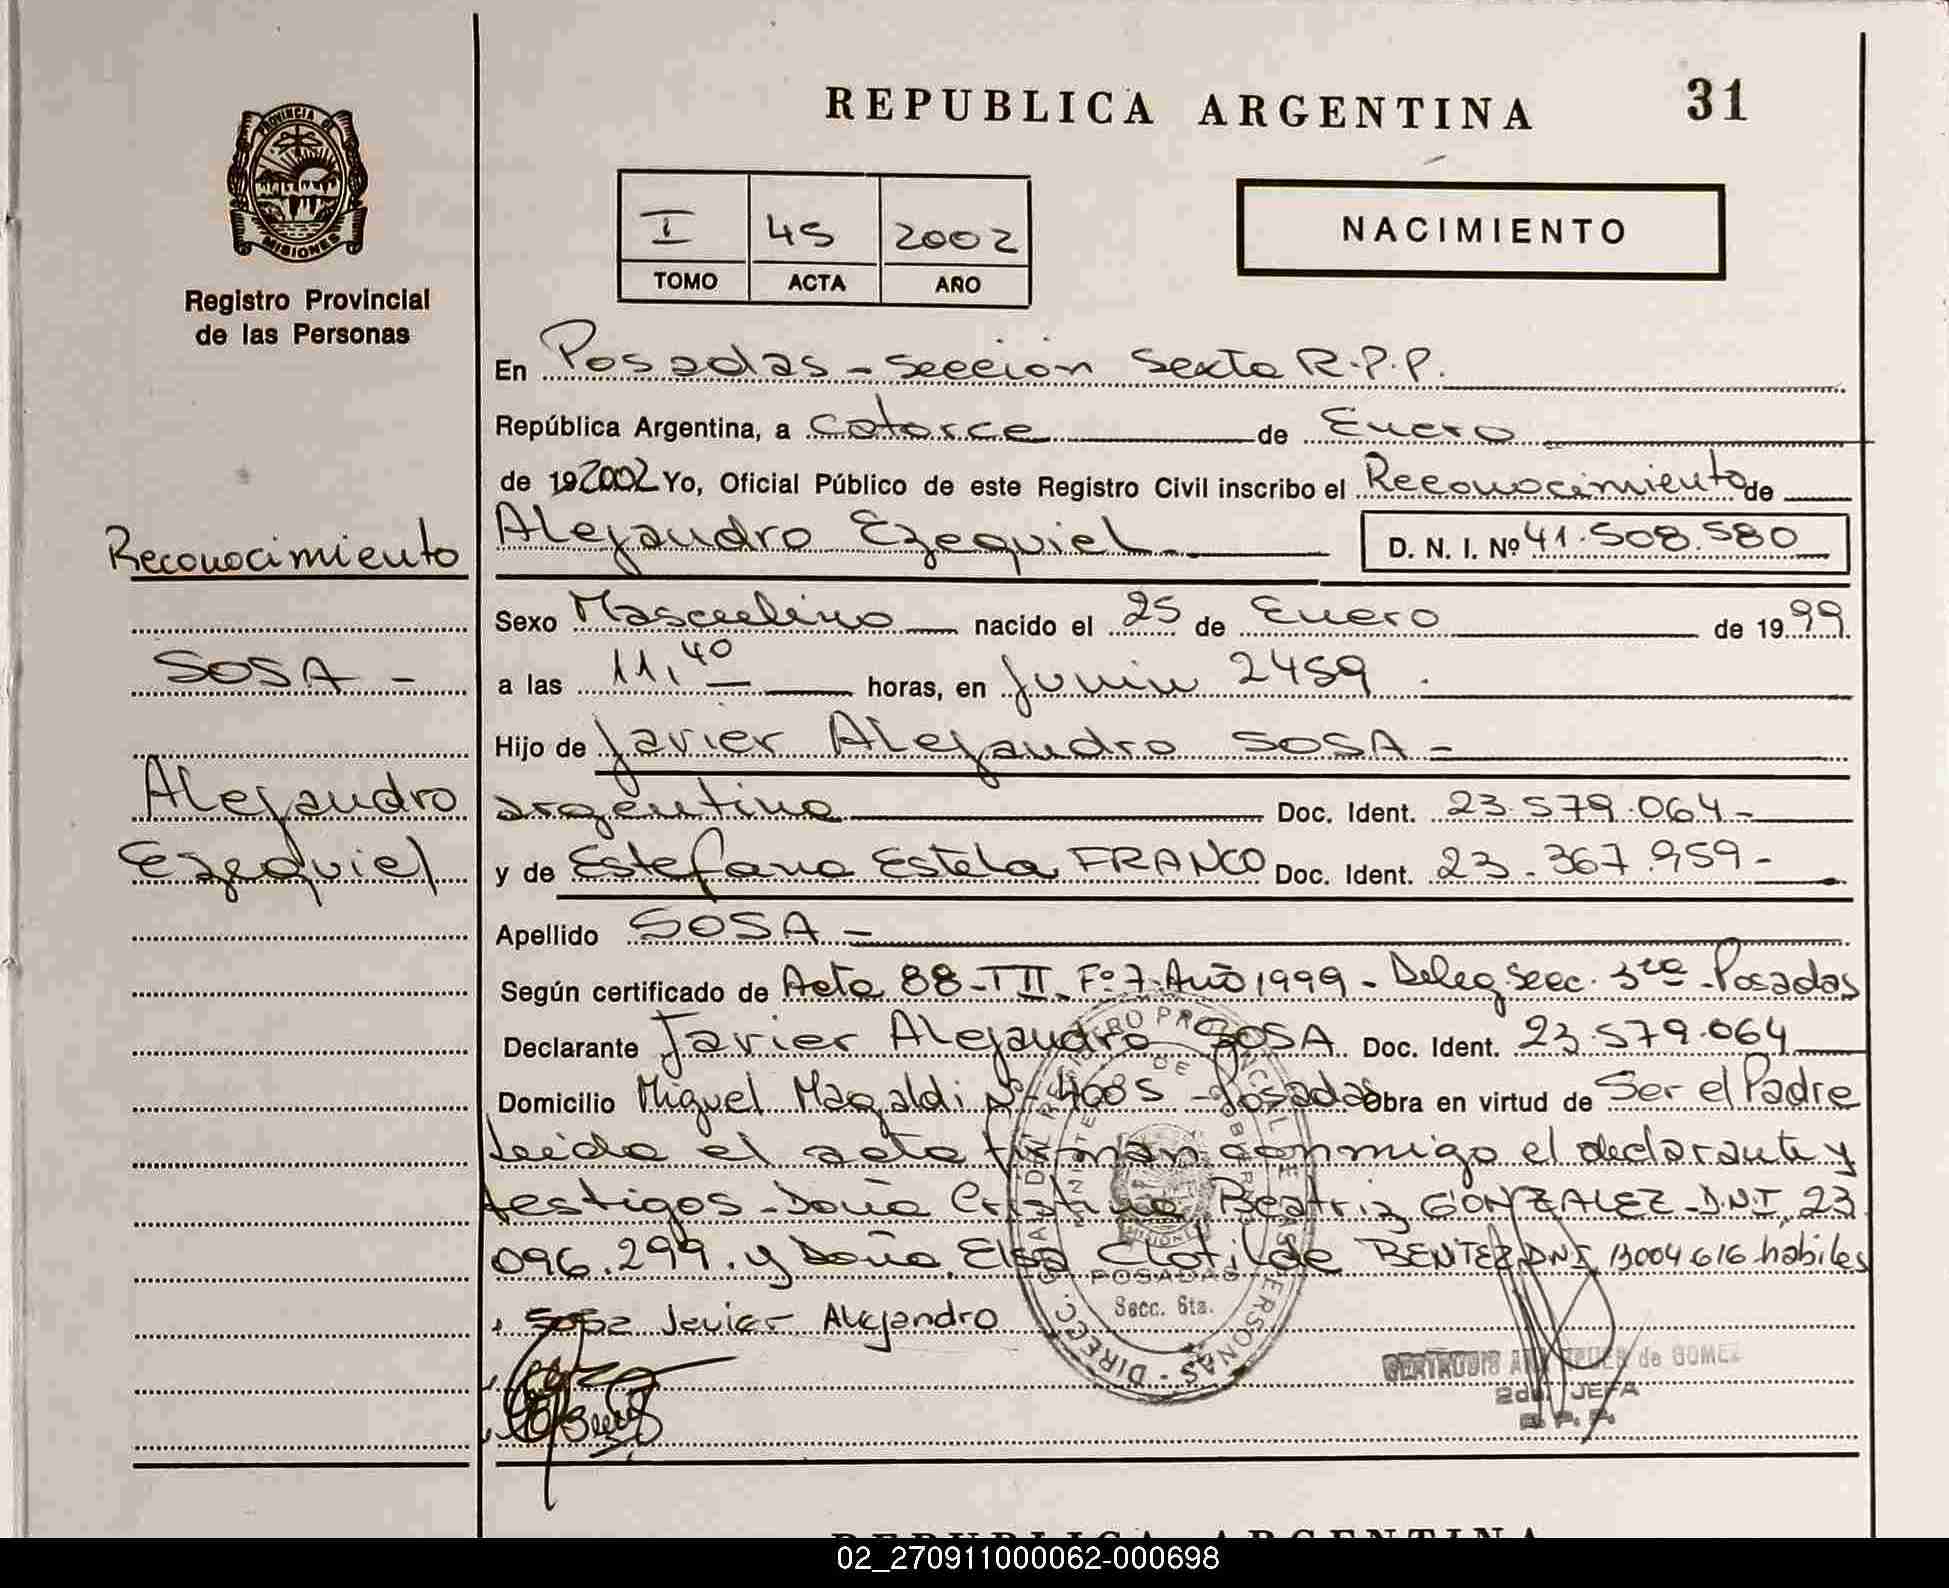 REPUBLICA ARGENTINA
31
PROVINCIA DE
MISIONES
Registro Provincial
de las Personas
I 45 2002
TOMO ACTA AÑO
NACIMIENTO
En Posadas - Sección Sexta R.P.P.
República Argentina, a catorce de Enero
de 192002 Yo, Oficial Público de este Registro Civil inscribo el Reconocimiento de
Reconocimiento
Alejandro Ezequiel D. N. I. Nº 41.508.580
Sexo Masculino nacido el 25 de Enero de 1999
SOSA -
a las 11,40 horas, en Junin 2459.
Hijo de Javier Alejandro SOSA -
Alejandro
argentino Doc. Ident. 23.579.064 -
Ezequiel
y de Estefana Estela FRANCO Doc. Ident. 23.367.959 -
Apellido SOSA -
Según certificado de Acta 88 - T II - Fº 7 - Año 1999 - Deleg. Secc. 3ra - Posadas
Declarante Javier Alejandro SOSA Doc. Ident. 23.579.064
Domicilio Miguel Magaldi Nº 4085 - Posadas Obra en virtud de Ser el Padre
Leida el acta firman conmigo el declarante y
testigos - Doña Cristina Beatriz GONZALEZ - D.N.I. 23
096.299. y Doña Elsa Clotilde BENTEZ DNI 13004616 habiles
Sosa Javier Alejandro
POSADAS
Secc. 6ta.
de GOMEZ
2da. JEFA
R. P. P.
REPUBLICA ARGENTINA
02_270911000062-000698